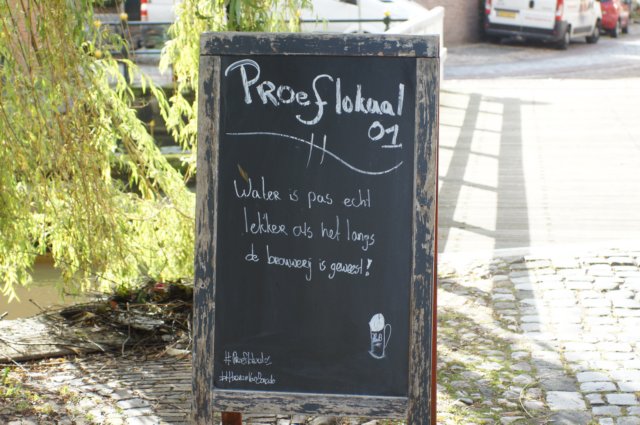 Proeflokaal
01
Water is pas echt
lekker als het langs
de brouwerij is geweest!